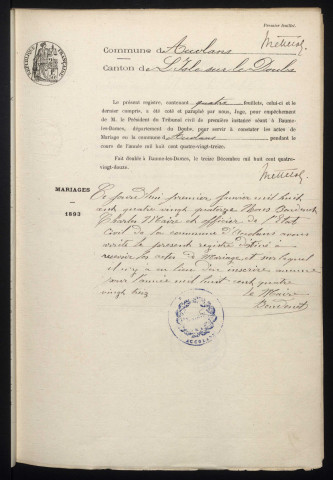 Premier feuillet.
Commune d'Accolans
Canton de L'Isle sur le Doubs
RÉPUBLIQUE FRANÇAISE
Le présent registre, contenant quatre feuillets, celui-ci et le
dernier compris, a été coté et paraphé par nous, Juge, pour empêchement
de M. le Président du Tribunal civil de première instance séant à Baume-
les-Dames, département du Doubs, pour servir à constater les actes de
Mariage en la commune d'Accolans pendant le
cours de l'année mil huit cent quatre-vingt-treize.
Fait double à Baume-les-Dames, le treize Décembre mil huit cent quatre-
vingt-douze.
MARIAGES
1893
Ce jourd'hui premier janvier mil huit
cent quatre vingt quatorze Nous
Charles Maire et officier de l'Etat
Civil de la commune d'Accolans avons
le présent registre destiné à
recevoir les actes de Mariage et sur lequel
il n'y a eu lieu d'en inscrire aucun
pour l'année mil huit cent quatre
vingt treize
Le Maire